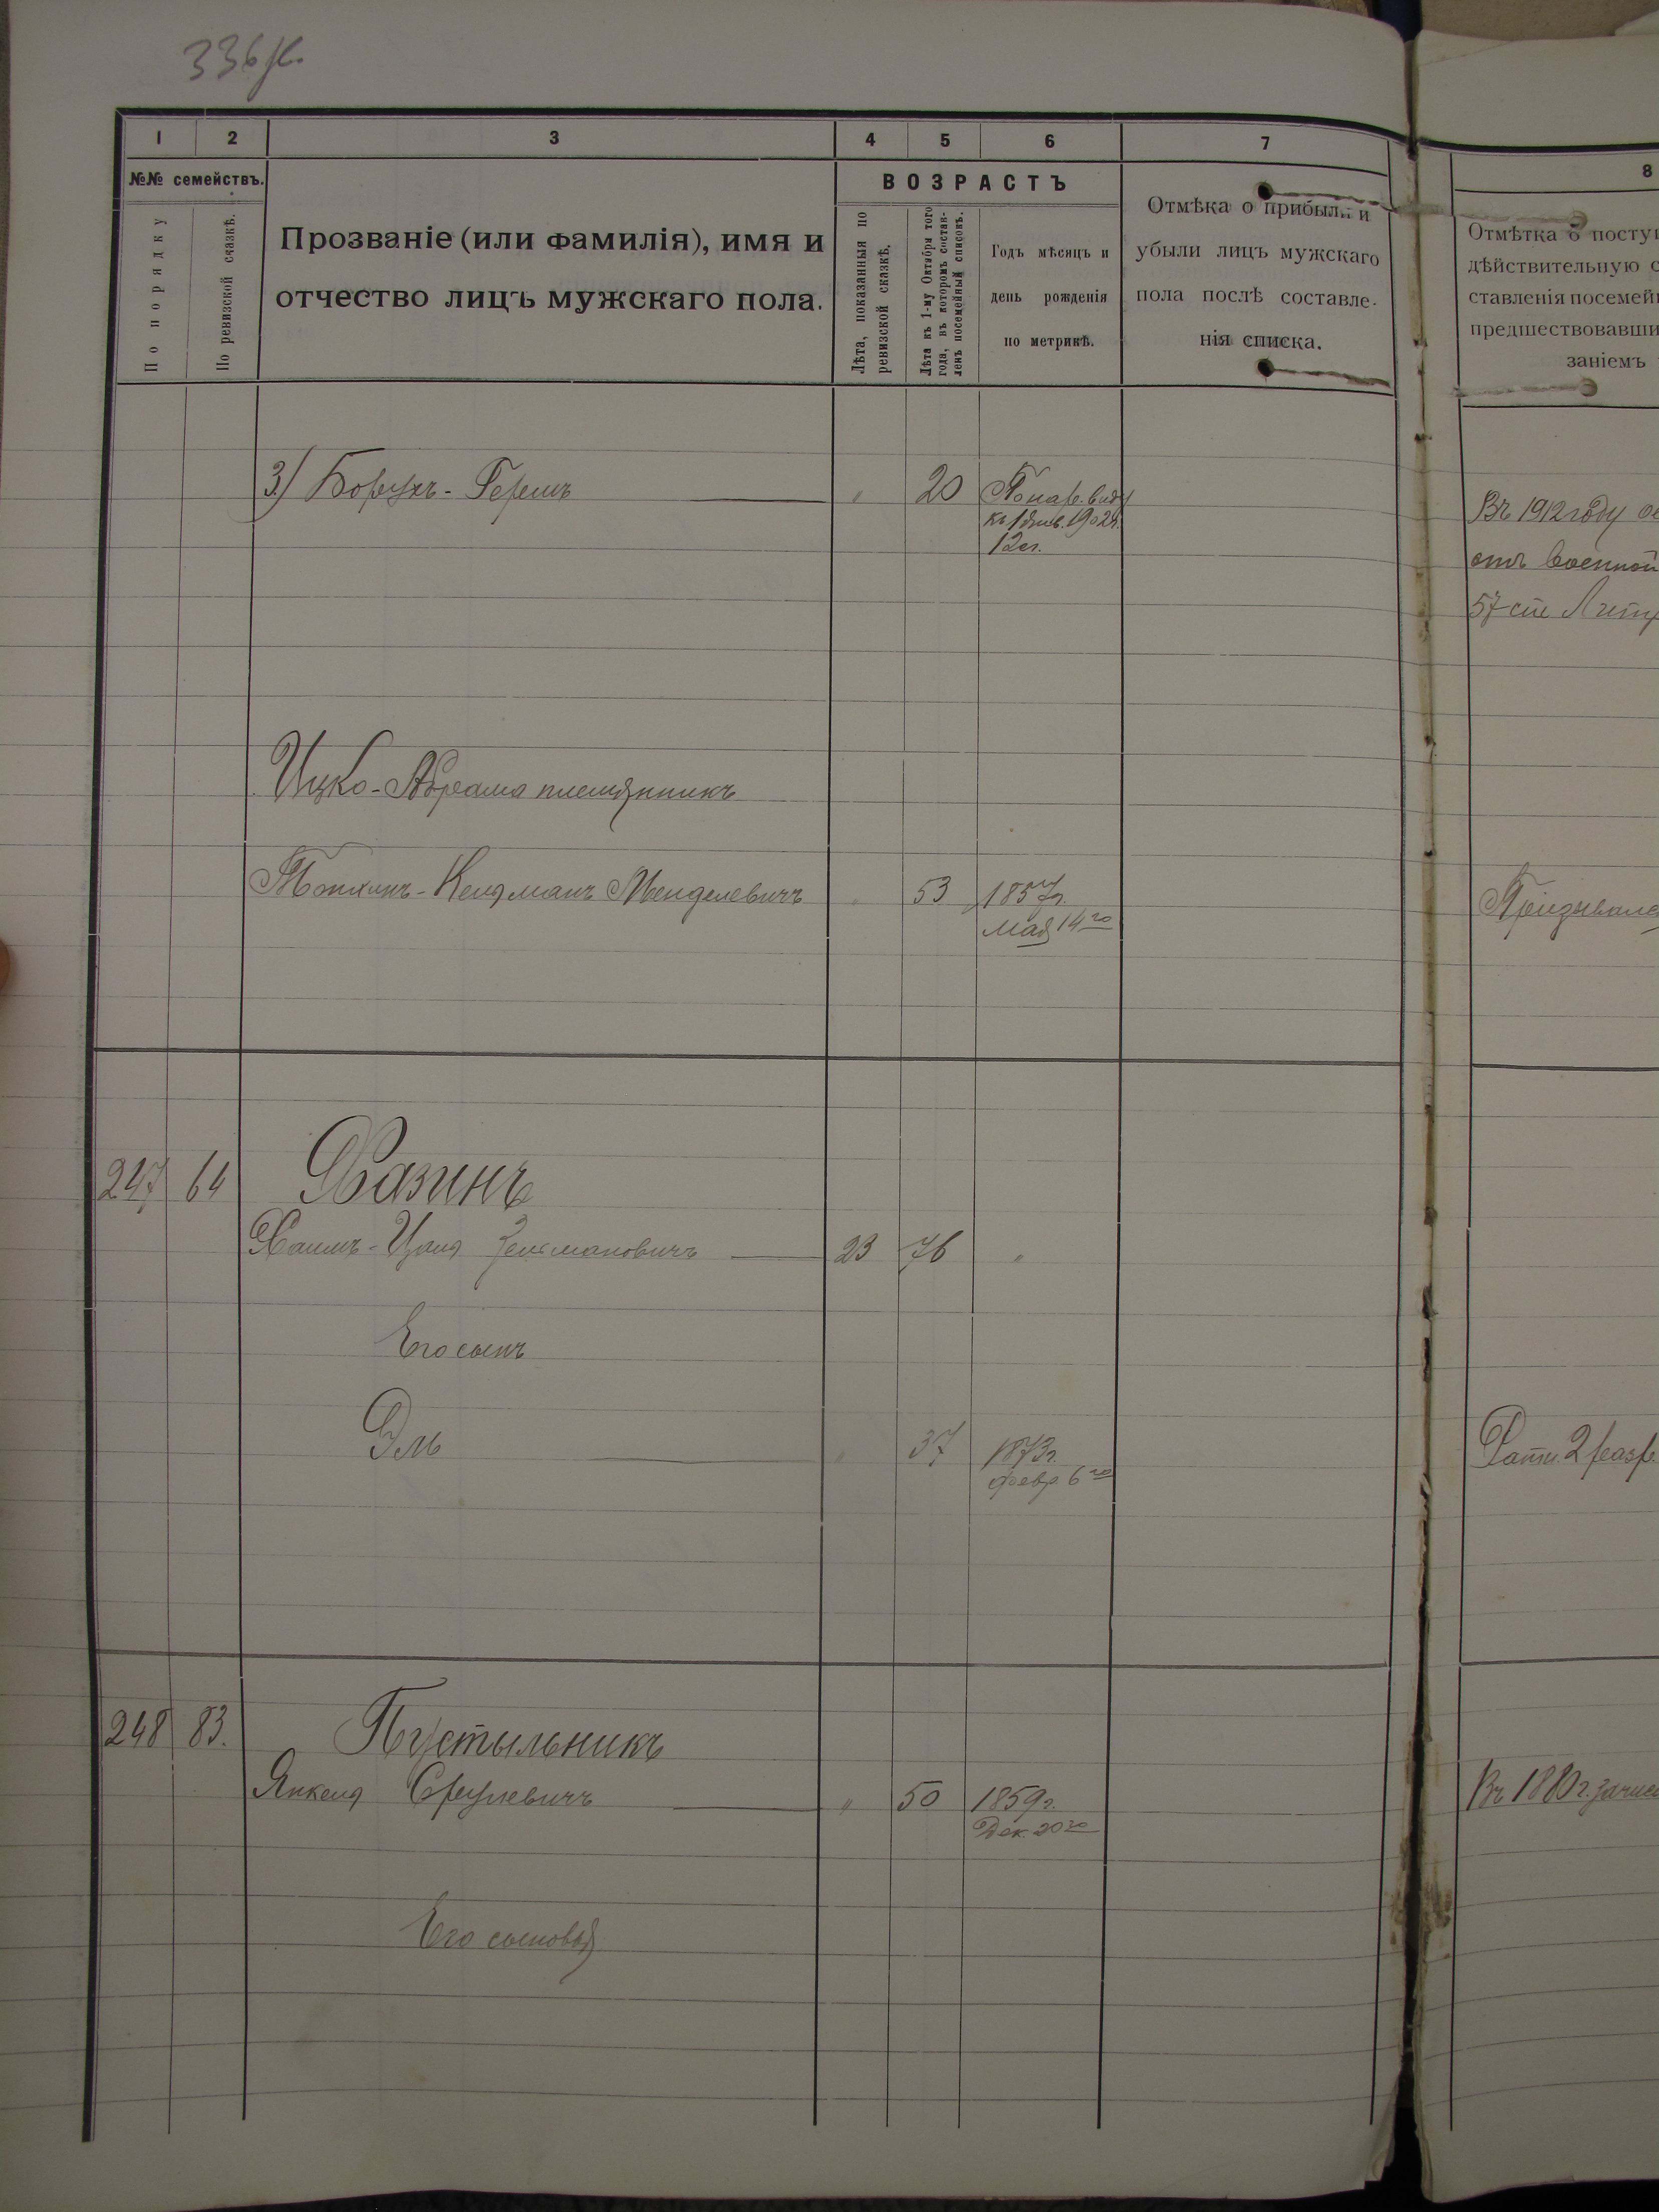 336
1 2 3 4 5 6 7
№№ семействъ.
По порядку
По ревизской сказкѣ.
Прозваніе (или фамилія), имя и
отчество лицъ мужскаго пола.
ВОЗРАСТЪ
Лѣта, показанныя по
ревизской сказкѣ.
Лѣта къ 1-му Октября того
года, въ которомъ состав-
ленъ посемейный списокъ.
Годъ мѣсяцъ и
день рожденія
по метрикѣ.
Отмѣка о прибыли и
убыли лицъ мужскаго
пола послѣ составле-
нія списка.
3) Борухъ-Гершъ " 20 По нар. виду
къ 1 янв. 1902 г.
12 л.
Ицко-Абрама племянникъ
Мендолевичъ " 53 1857 г.
Мая 14го
247 64 Хазинъ
Хаимъ- Зельмановичъ 23 76 "
Его сынъ
Эль " 37 1873 г.
февр. 6го
248 83. Пустыльникъ
Янкель Срулевичъ " 50 1859 г.
Дек. 20го
Его сыновья
8
Отмѣтка о посту
дѣйствительную с
ставленія посемей
предшествовавши
заніемъ
Въ 1912 году ос
отъ военной
57 ст.
Призывался
Рати. 2 разр.
Въ 1880 г. зачис